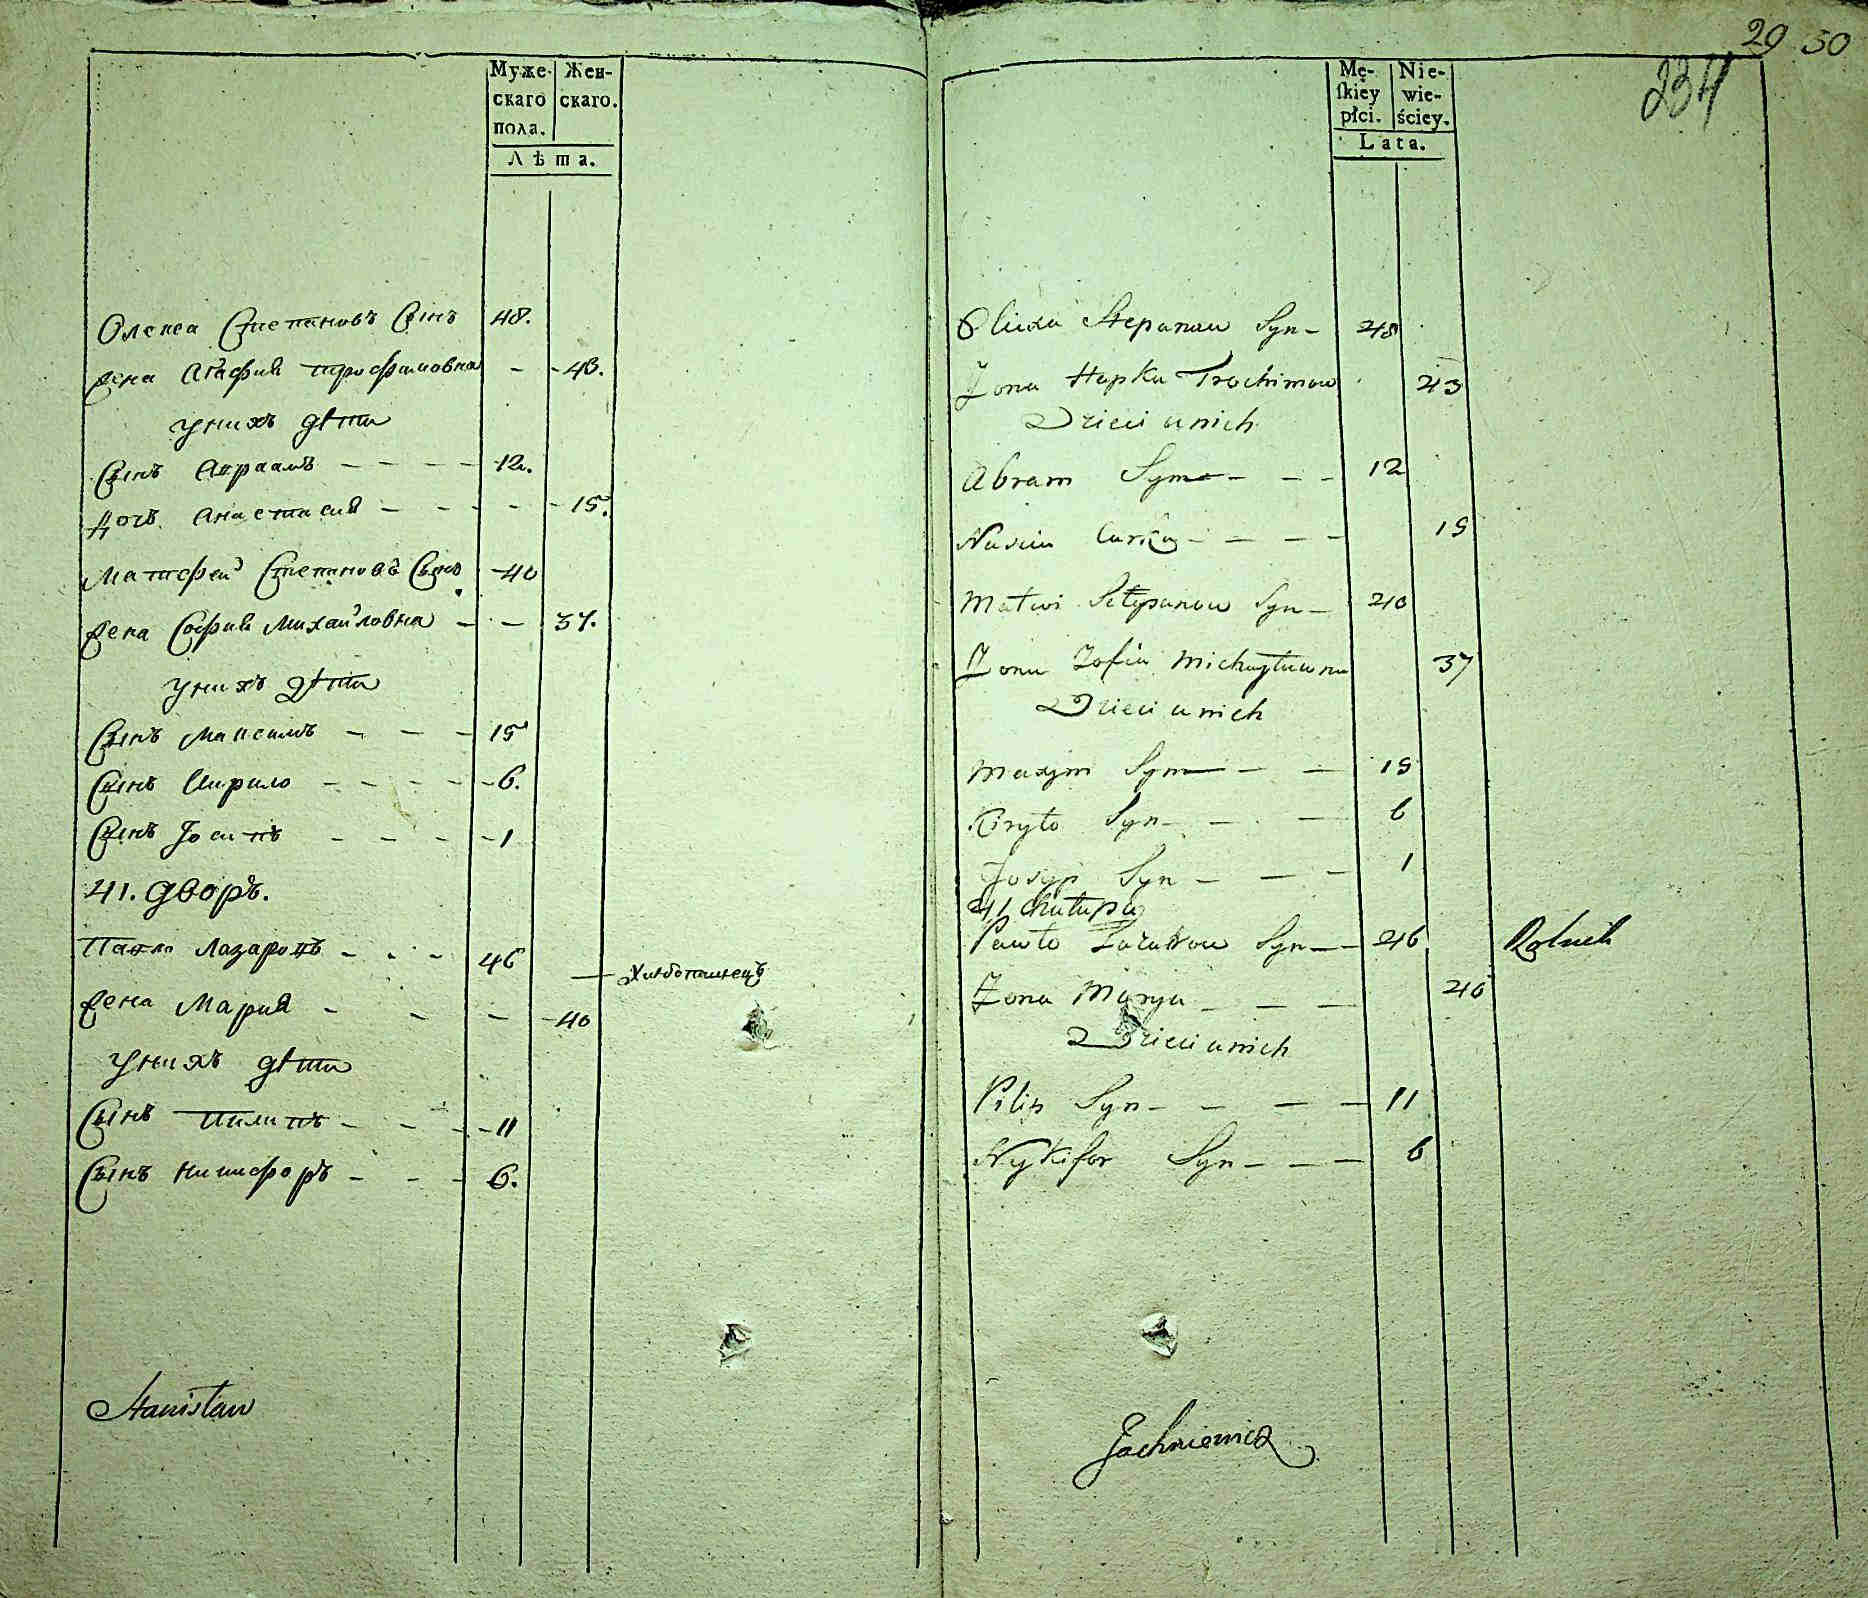 29 30
234
Муже- Жен-
скаго скаго.
пола.
Лѣта.
Олекса Степановъ Сынъ 48.
Жена Агафия трофимовна - - 43.
у нихъ дѣти
Сынъ Авраамъ - - - - 12.
Дочъ Анастасия - - - - - 15.
Матфей Степановъ Сынъ - 40
Жена София Михайловна - - 37.
у нихъ дѣти
Сынъ Максимъ - - - 15
Сынъ Кирило - - - - - 6.
Сынъ Іосипъ - - - - 1
41. дворъ.
Павло Лазаровъ - - - 46 — Хлѣбопашецъ
Жена Мария - - - - 40
у нихъ дѣти
Сынъ Пилипъ - - - - 11
Сынъ Никифоръ - - - 6.
Stanisław
Mę- Nie-
skiey wie-
płci. ściey.
Lata.
Olixa Stepanow Syn - 48
Zona Hapka Trochimow 43
Dzieci u nich
Abram Syn - - - 12
Nascia Curka - - - - 15
Matwi Stepanow Syn - 40
Zona Zofia Michayłowna 37
Dzieci u nich
Maxym Syn - - 15
Kiryło Syn - - - 6
Josyp Syn - - - 1
41 Chałupa
Pawło Łazarow Syn - - 46 Rolnik
Zona Marya - - - 40
Dzieci u nich
Pilip Syn - - - - 11
Nykifor Syn - - - 6
Jachniewicz